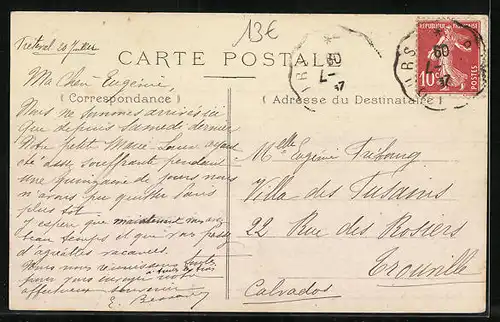 Fréteval 20 Juillet
13€
CARTE POSTALE
Ma Chère Eugénie,
( Correspondance )
( Adresse du Destinataire )
Nous ne sommes arrivés ici
que depuis Samedi dernier
Notre petite Marie-Louise ayant
été assez souffrante pendant
une quinzaine de jours nous
n'avons pu quitter Paris
plus tôt.
J'espère que maintenant
beau temps et que
d'agréables vacances.
Nous nous réunissons toutes
pour vous envoyer notre
affectueux souvenir
E.
Melle Eugénie
Villa des Fusains
22 Rue des Rosiers
Trouville
Calvados
REPUBLIQUE FRANÇAISE
10
POSTES
TOURS
09